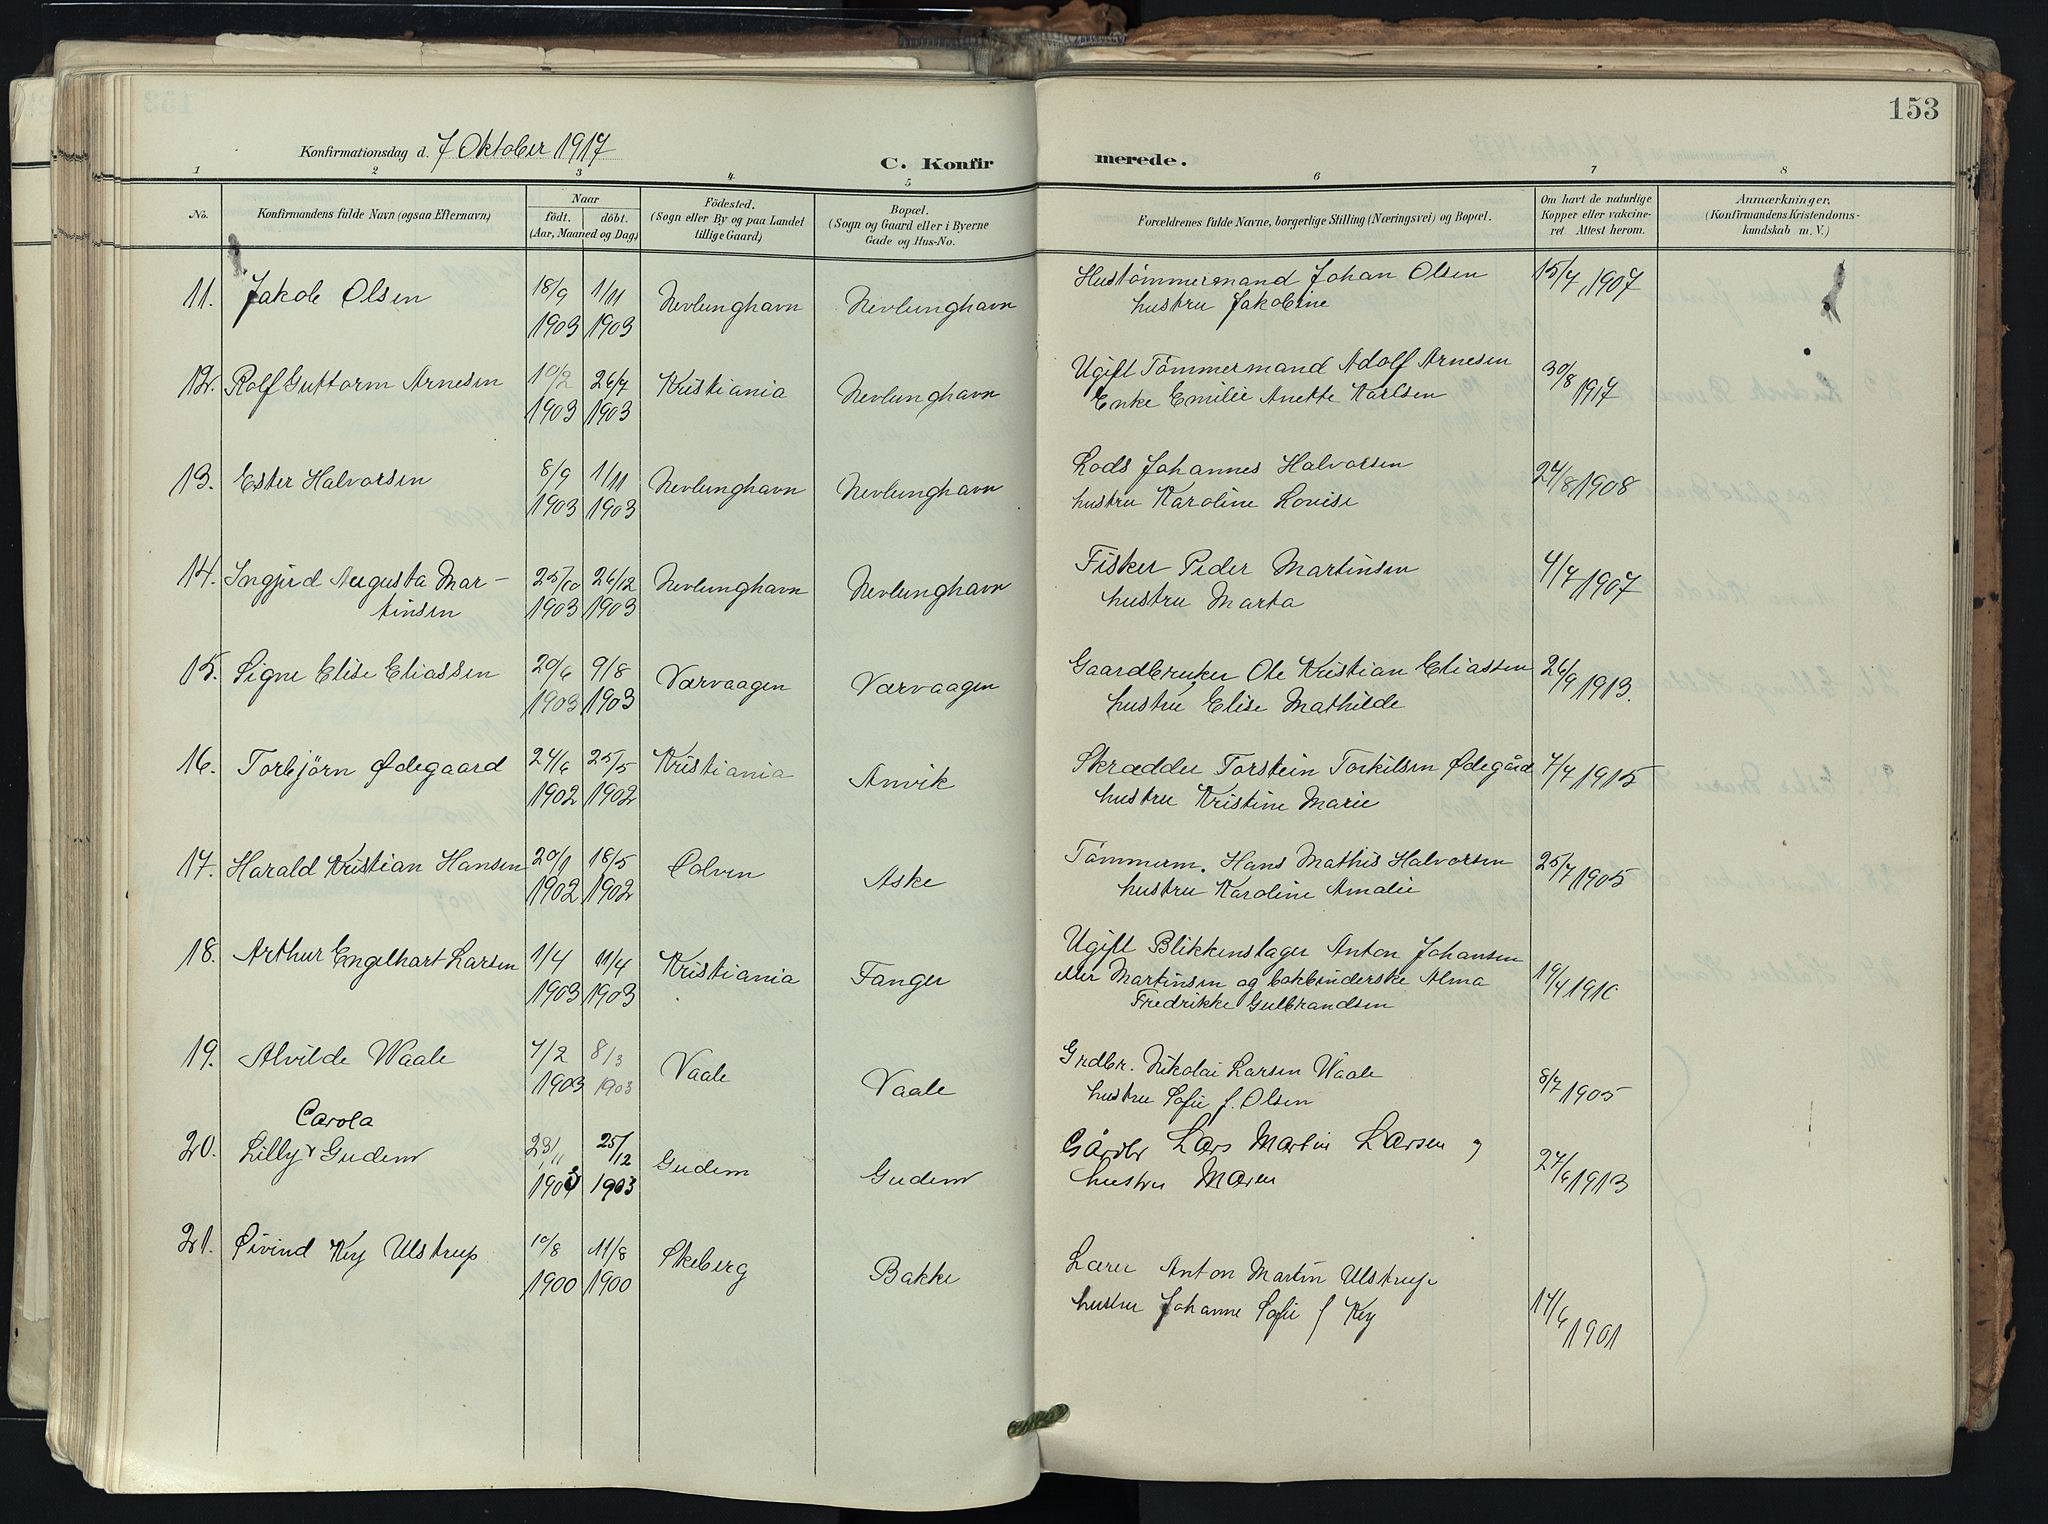 153
Konfirmationsdag d. 7 Oktober 1917
C. Konfirmerede.
1 2 3 4 5 6 7 8
No. Konfirmandens fulde Navn (ogsaa Efternavn) Naar födt. döbt. (Aar, Maaned og Dag) Födested. (Sogn eller By og paa Landet tillige Gaard) Bopæl. (Sogn og Gaard eller i Byerne Gade og Hus-No. Forældrenes fulde Navne, borgerlige Stilling (Næringsvei) og Bopæl. Om havt de naturlige Kopper eller vakcineret. Attest herom. Anmærkninger, (Konfirmandens Kristendomskundskab m. V.)
11. Jakob Olsen 18/9 1/11 Nevlunghavn Nevlunghavn Hustømmermand Johan Olsen 15/7 1907
1903 1903 hustru Jakobine
12. Rolf Guttorm Arnesen 10/2 26/7 Kristiania Nevlunghavn Ugift Tømmermand Adolf Arnesen 30/8 1917
1903 1903 Enke Emilie Anette Karlsen
13. Ester Halvorsen 8/9 1/11 Nevlunghavn Nevlunghavn Lods Johannes Halvorsen 24/8 1908
1903 1903 hustru Karoline Lovise
14. Ingjerd Augusta Mar- 25/10 26/12 Nevlunghavn Nevlunghavn Fisker Peder Martinsen 4/7 1907
tinsen 1903 1903 hustru Marta
15. Signe Elise Eliassen 20/6 9/8 Varvaagen Varvaagen Gaardbruker Ole Kristian Eliassen 26/9 1913.
1903 1903 hustru Elise Mathilde
16. Torbjörn Ødegaard 24/6 25/5 Kristiania Anvik Skrædder Torstein Torkilsen Ødegård 7/7 1915
1902 1902 hustru Kristine Marie
17. Harald Kristian Hansen 20/1 18/5 Colven Aske Tømmerm. Hans Mathis Halvorsen 25/7 1905
1902 1902 hustru Karoline Amalie
18. Arthur Engelhart Larsen 1/4 11/4 Kristiania Fanger Ugift Blikkenslager Anton Johansen
1903 1903 eller Martinsen og bokbinderske Alma 19/4 1910
Fredrikke Gulbrandsen
19. Alvilde Waale 7/2 8/3 Vaale Vaale Grdbr. Nikolai Larsen Waale 8/7 1905
1903 1903 hustru Sofie f. Olsen
Carola
20. Lilly Gudem 23/11 25/12 Gudem Gudem Gårdbr Lars Martin Larsen og 27/6 1913
1903 1903 hustru Maren
21. Øivind Key Ulstrup 10/8 11/8 Skeberg Bakke Lærer Anton Martin Ulstrup
1900 1900 hustru Johanne Sofie f Key 17/6 1901